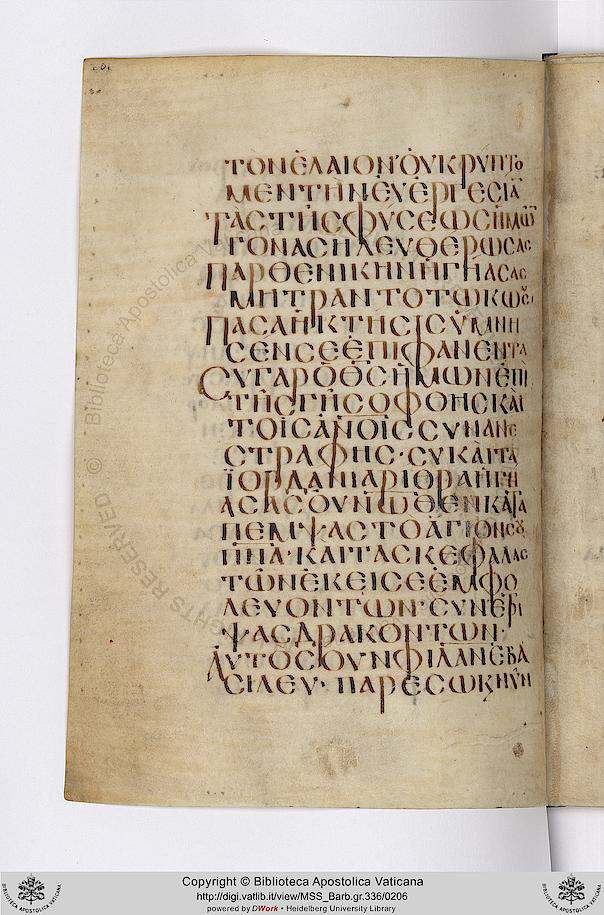 ΤΟΝΕΛΑΙΟΝ·ΟΥΚΡΥΠΤΟ
ΜΕΝΤΗΝΕΥΕΡΓΕΣΙΑ̅
ΤΑΣΤΗΣΦΥΣΕΩΣΗΜΩ̅
ΓΟΝΑΣΗΛΕΥΘΕΡΩΣΑΣ
ΠΑΡΘΕΝΙΚΗΝΗΓΗΑΣΑΣ
ΜΗΤΡΑΝΤΟΤΩΚΩΣȢ·
ΠΑΣΑΗΚΤΗΣΙΣΥΜΝΗ
ΣΕΝΣΕΕΠΙΦΑΝΕΝΤΑ
ΣΥΓΑΡΟΘ̅Σ̅ΗΜΩΝΕΠΙ
ΤΗΣΓΗΣΟΦΘΗΣΚΑΙ
ΤΟΙΣΑΝΟΙΣΣΥΝΑΝΕ
ΣΤΡΑΦΗΣ·ΣΥΚΑΙΤΑ
ΪΟΡΔΑΝΙΑΡΙΘΡΑΗΓΗ
ΑΣΑΣΟΥΝΩΘΕΝΚΑΤΑ
ΠΕΜΨΑΣΤΟΑΓΙΟΝΣȢ
Π̅Ν̅Α̅·ΚΑΙΤΑΣΚΕΦΑΛΑΣ
ΤΩΝΕΚΕΙΣΕΕΜΦΟ
ΛΕΥΟΝΤΩΝ·ΣΥΝΕΤΡΙ
ΨΑΣΔΡΑΚΟΝΤΩΝ·
ΑΥΤΟΣΟΥΝΦΙΛΑΝΕΒΑ
ΣΙΛΕΥ·ΠΑΡΕΣΩΚ,ΝΥΝ
Copyright © Biblioteca Apostolica Vaticana
http://digi.vatlib.it/view/MSS_Barb.gr.336/0206
powered by DWork • Heidelberg University Library